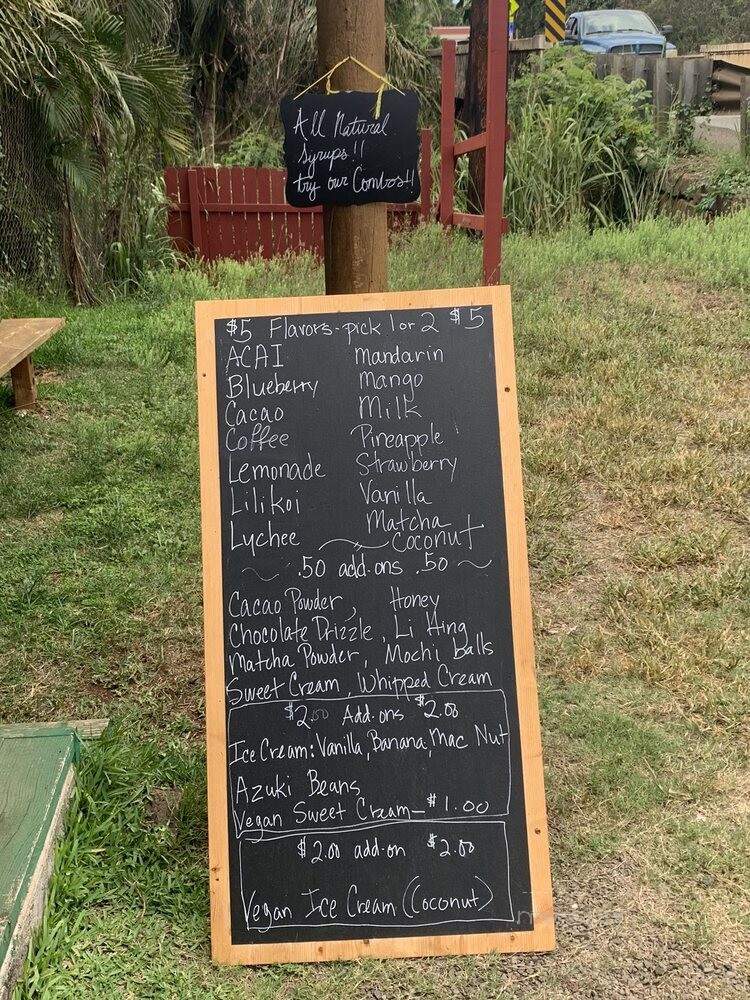 All Natural
Syrups!!
try our Combos!!
$5 Flavors - pick 1 or 2 $5
ACAI Mandarin
Blueberry Mango
Cacao Milk
Coffee Pineapple
Lemonade Strawberry
Lilikoi Vanilla
Lychee Matcha
Coconut
.50 add-ons .50
Cacao Powder, Honey
Chocolate Drizzle, Li Hing
Matcha Powder, Mochi balls
Sweet Cream, Whipped Cream
$2.00 Add-ons $2.00
Ice Cream: Vanilla, Banana, Mac Nut
Azuki Beans
Vegan Sweet Cream - $1.00
$2.00 add-on $2.00
Vegan Ice Cream (Coconut)